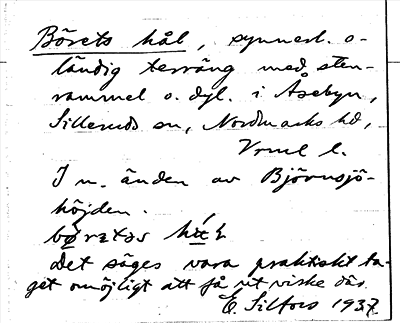 Börets hål, synnerl. o-
ländig terräng med sten-
rammel o. dyl. i Åsebyn,
Sillerud sn, Nordmarks hd,
Vrml l.
I n. änden av Björnsjö-
höjden.
Det säges vara praktiskt ta-
get omöjligt att få ut virke där.
E. Silfors 1937